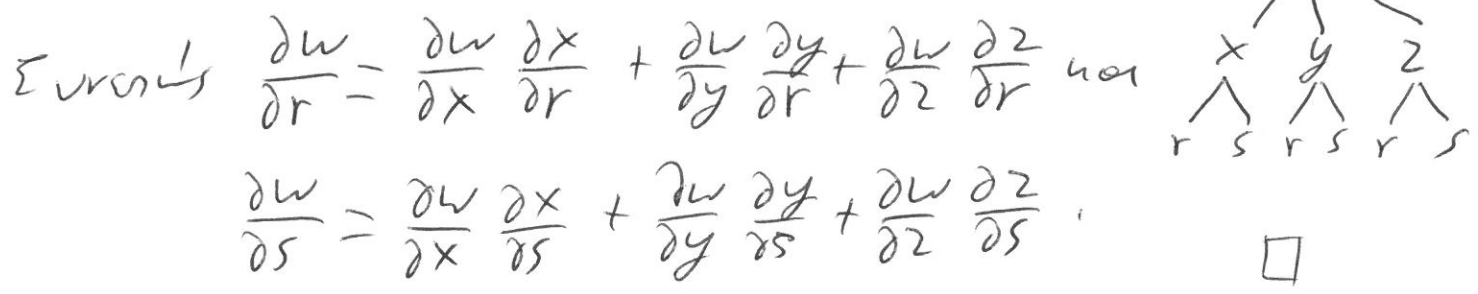 Συνεπώς ∂w/∂r = ∂w/∂x ∂x/∂r + ∂w/∂y ∂y/∂r + ∂w/∂z ∂z/∂r και
x y z
r s r s r s
∂w/∂s = ∂w/∂x ∂x/∂s + ∂w/∂y ∂y/∂s + ∂w/∂z ∂z/∂s .
□